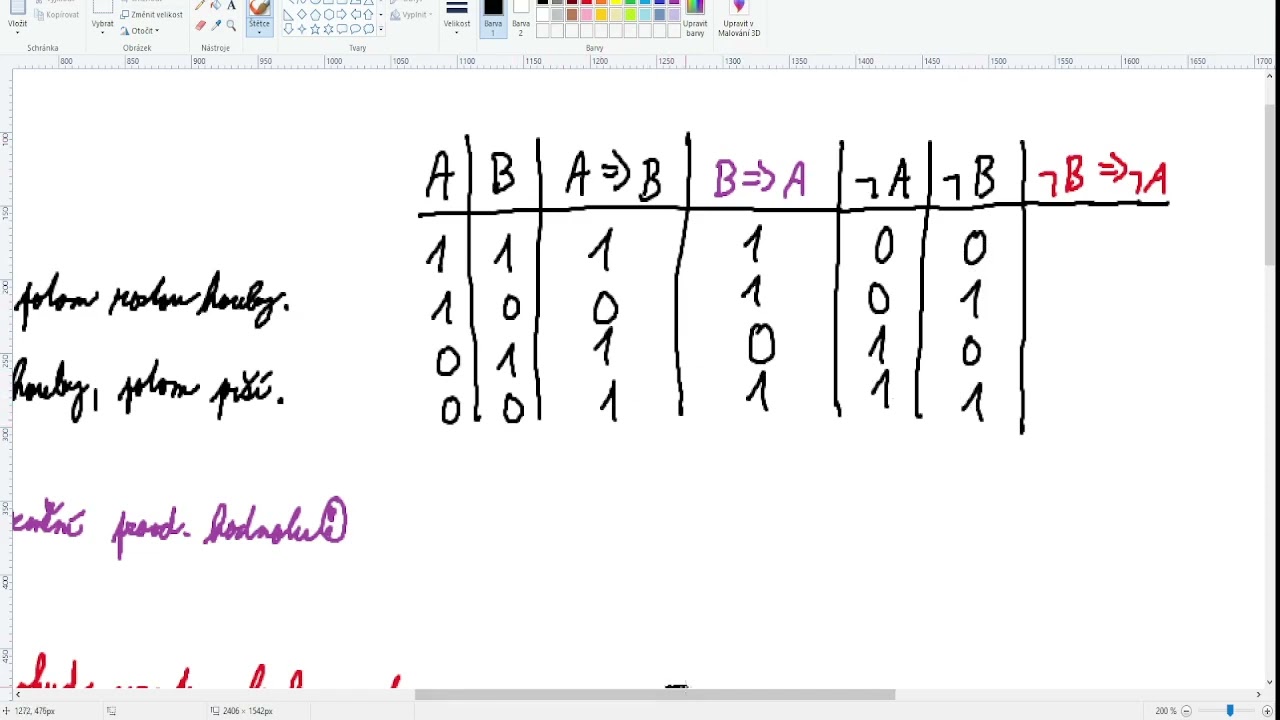 Vložit Kopírovat Vybrat Změnit velikost Otočit A Štětce Vyplnit Velikost Barva 1 Barva 2 Upravit barvy Upravit v Malování 3D
Schránka Obrázek Nástroje Tvary Barvy
800 850 900 950 1000 1050 1100 1150 1200 1250 1300 1350 1400 1450 1500 1550 1600 1650 1700
A B A ⇒ B B ⇒ A ¬A ¬B ¬B ⇒ ¬A
1 1 1 1 0 0
1 0 0 1 0 1
0 1 1 0 1 0
0 0 1 1 1 1
potom rostou houby.
houby, potom prší.
pravd. hodnotu
100
150
200
250
300
350
400
450
1272, 476px 2406 × 1542px 200 %